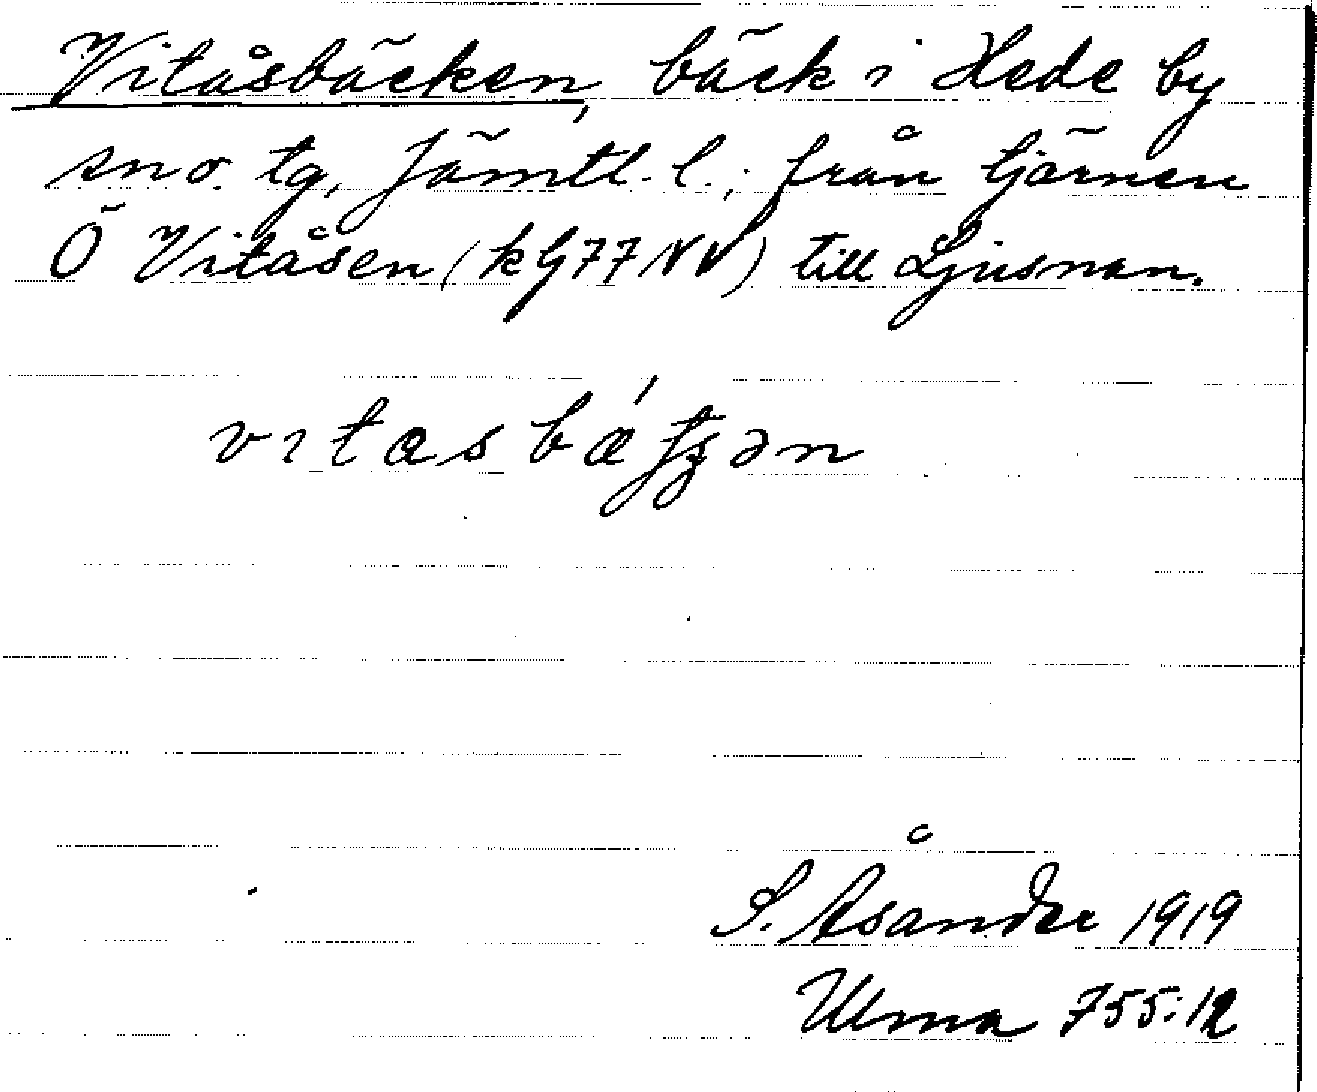 Vitåsbäcken, bäck i Hede by
sno. tg, Jämtl. l.; från tjärnen
Ö Vitåsen (kG77NV) till Ljusnan.
S. Åsander 1919
Ulma 755:12